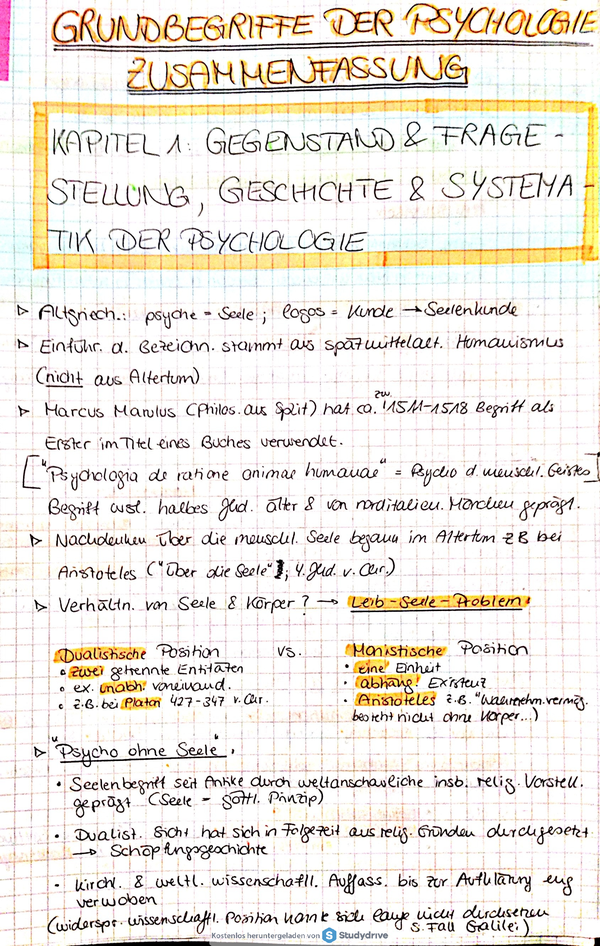 GRUNDBEGRIFFE DER PSYCHOLOGIE
ZUSAMMENFASSUNG
KAPITEL 1: GEGENSTAND & FRAGE-
STELLUNG, GESCHICHTE & SYSTEMA-
TIK DER PSYCHOLOGIE
▷ Altgriech.: psyche = Seele ; logos = Kunde → Seelenkunde
▷ Einführ. d. Bezeichn. stammt aus spätmittelalt. Humanismus
(nicht aus Altertum)
▷ Marcus Marulus (Philos. aus Split) hat ca. zw. 1511-1518 Begriff als
Erster im Titel eines Buches verwendet.
["Psychologia de ratione animae humanae" = Psycho d. menschl. Geistes]
Begriff wsl. halbes Jhd. älter & von norditalien. Mönchen geprägt.
▷ Nachdenken über die menschl. Seele begann im Altertum z B bei
Aristoteles ("Über die Seele"; 4. Jhd. v. Chr.)
▷ Verhältn. von Seele & Körper ? → Leib-Seele-Problem:
Dualistische Position vs. Monistische Position
• zwei getrennte Entitäten
• ex. unabh. voneinand.
• z.B. bei Platon 427-347 v. Chr.
• eine Einheit
• abhäng. Existenz
• Aristoteles z.B. "Wahrnehm.vermög.
besteht nicht ohne Körper...)
▷ "Psycho ohne Seele".
• Seelenbegriff seit Antike durch weltanschauliche insb. relig. Vorstell.
geprägt (Seele = göttl. Prinzip)
• Dualist. Sicht hat sich in Folgezeit aus relig. Gründen durchgesetzt
→ Schöpfungsgeschichte
• Kirchl. & weltl. wissenschaftl. Auffass. bis zur Aufklärung eng
verwoben
(widerspr. wissenschaftl. Position konnte sich lange nicht durchsetzen
s. Fall Galilei)
Kostenlos heruntergeladen von S Studydrive